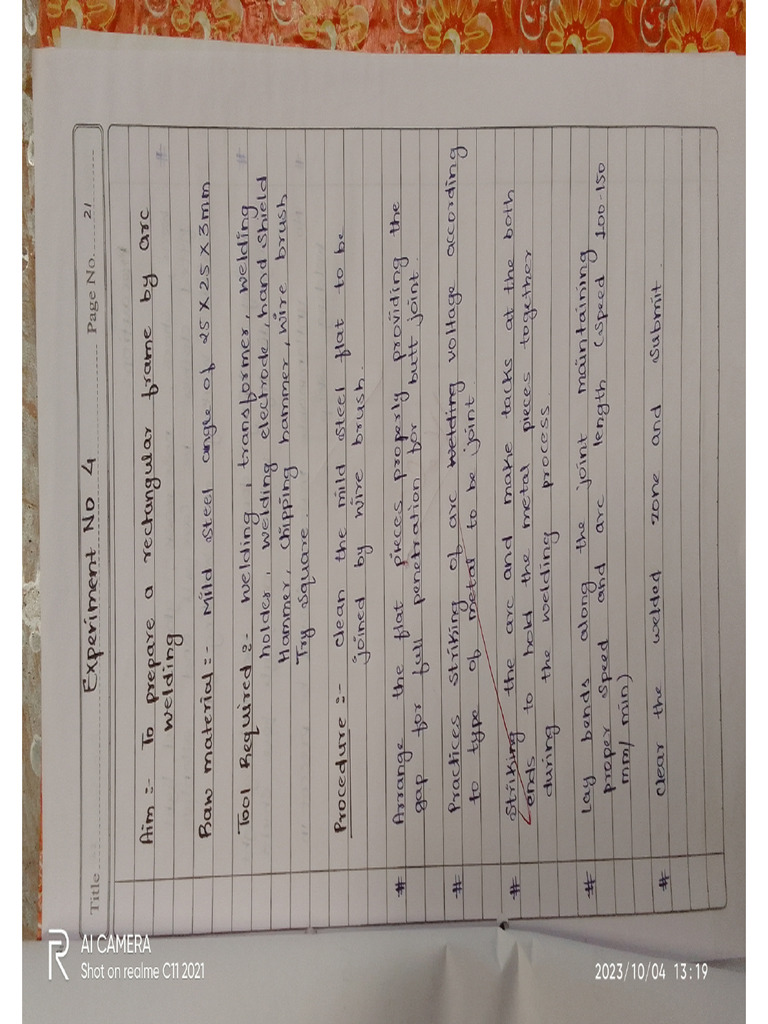 Title Experiment No 4 Page No. 21
Aim :- To prepare a rectangular frame by arc
welding
Raw material :- Mild steel angle of 25 X 25 X 3mm
Tool Required :- welding, transformer, welding
holder, welding electrode, hand shield
Hammer, chipping hammer, wire brush
Try square.
Procedure :- clean the mild steel flat to be
joined by wire brush.
# Arrange the flat pieces properly providing the
gap for full penetration for butt joint.
# Practices striking of arc welding voltage according
to type of metal to be joint
# Striking the arc and make tacks at the both
ends to hold the metal pieces together
during the welding process.
# Lay bends along the joint maintaining
proper speed and arc length (speed 100-150
mm/min)
# clear the welded zone and submit.
R AI CAMERA
Shot on realme C11 2021
2023/10/04 13:19